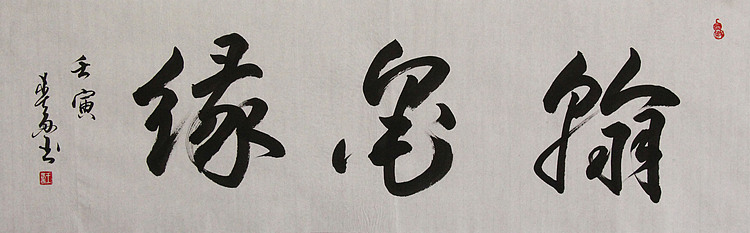 翰墨缘
壬寅